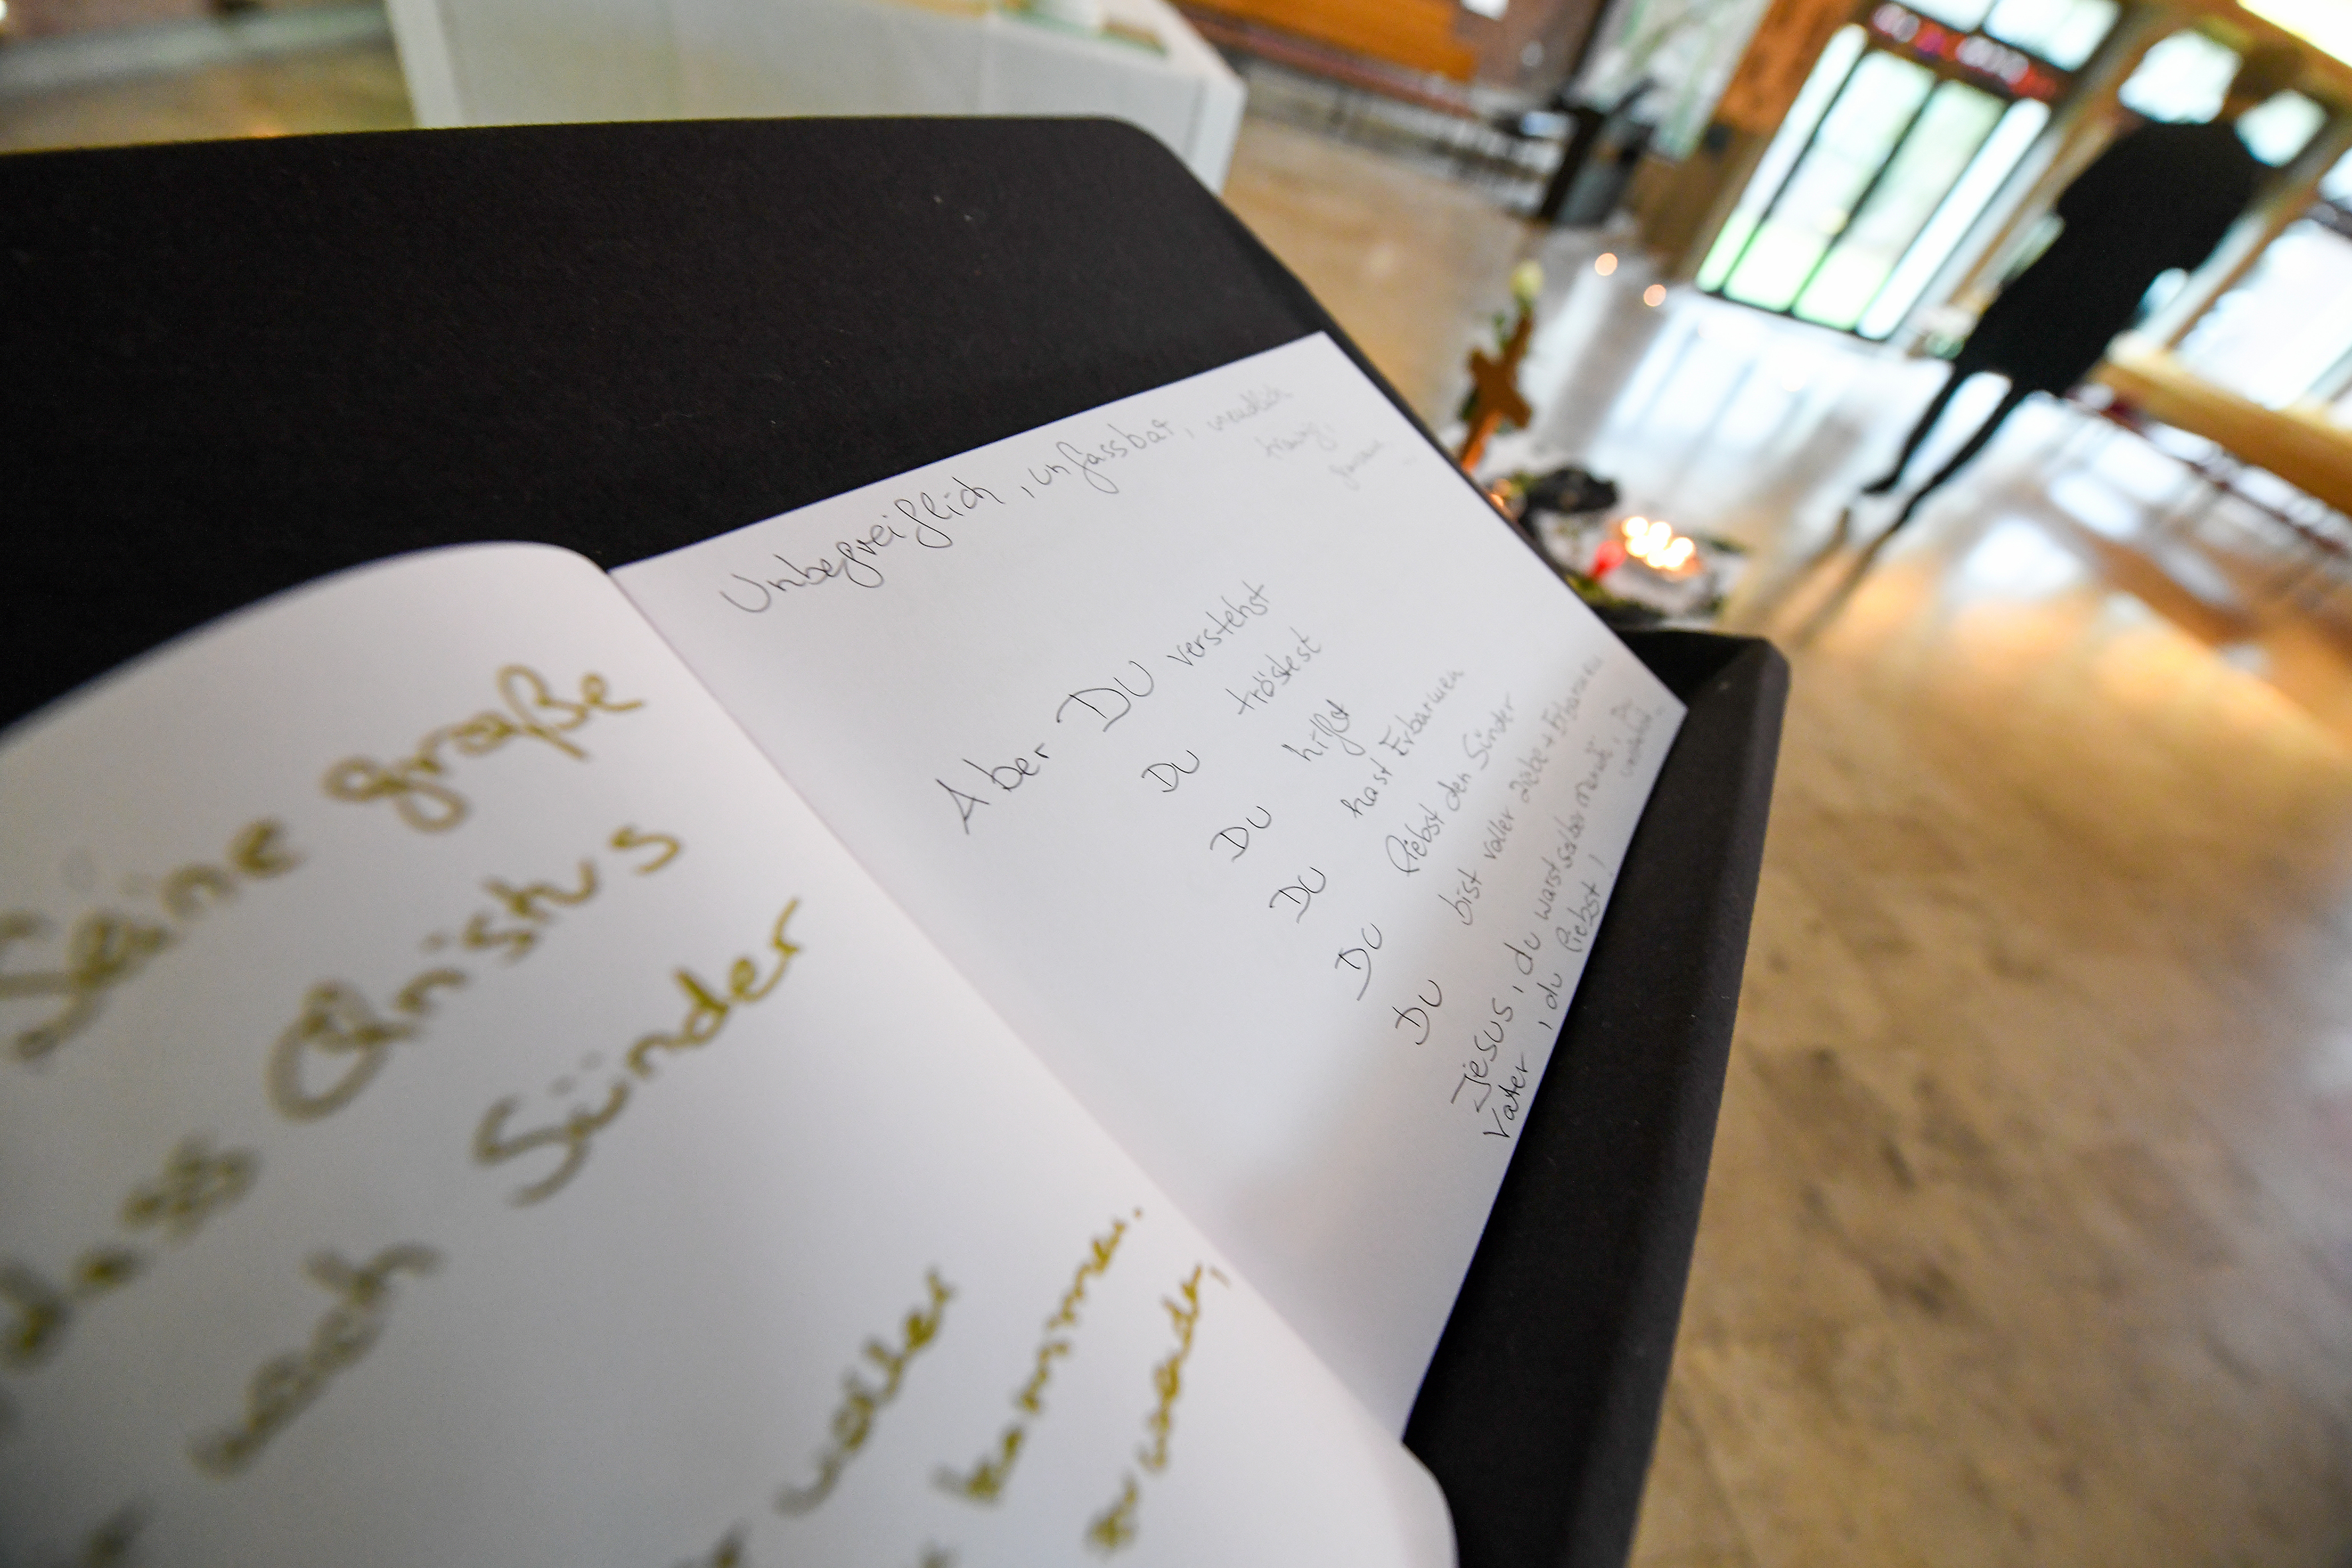 Seine große
dass Christus
noch Sünder
voller
kommen.
Unbegreiflich, unfassbar, unendlich
traurig,
Aber DU verstehst
DU tröstest
DU hilfst
DU hast Erbarmen
DU liebst den Sünder
DU bist voller Liebe + Erbarmen
Jesus, du warst selber
Vater, du liebst!